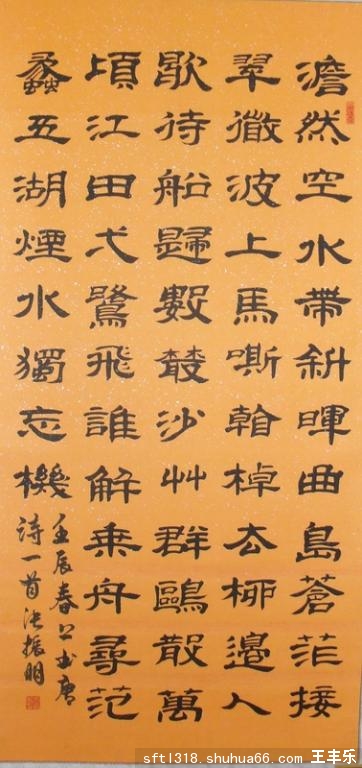 澹然空水帶斜暉曲島蒼茫接
翠微波上馬嘶看棹去柳邊人
歇待船歸數叢沙艸群鷗散萬
頃江田弌鷺飛誰解乘舟尋范
蠡五湖煙水獨忘機
壬辰春上书唐
詩一首张振明
sftl318.shuhua66.com 王丰乐